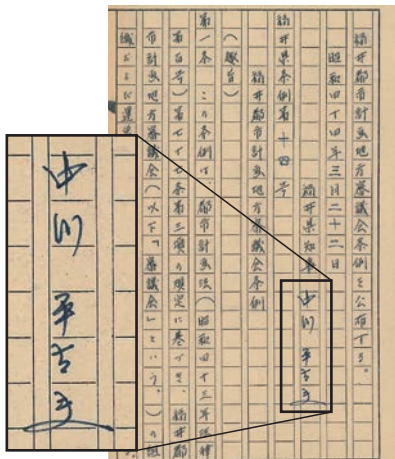 福井都市計画地方審議会条例を公布する。
昭和四十四年三月二十二日
福井県知事 中川平太夫
福井県条例第十四号
福井都市計画地方審議会条例
(趣旨)
第一条 この条例は、都市計画法(昭和四十三年法律
第百号)第七十七条第三項の規定に基づき、福井都
市計画地方審議会(以下「審議会」という。)の組
織および運
中川 平太夫